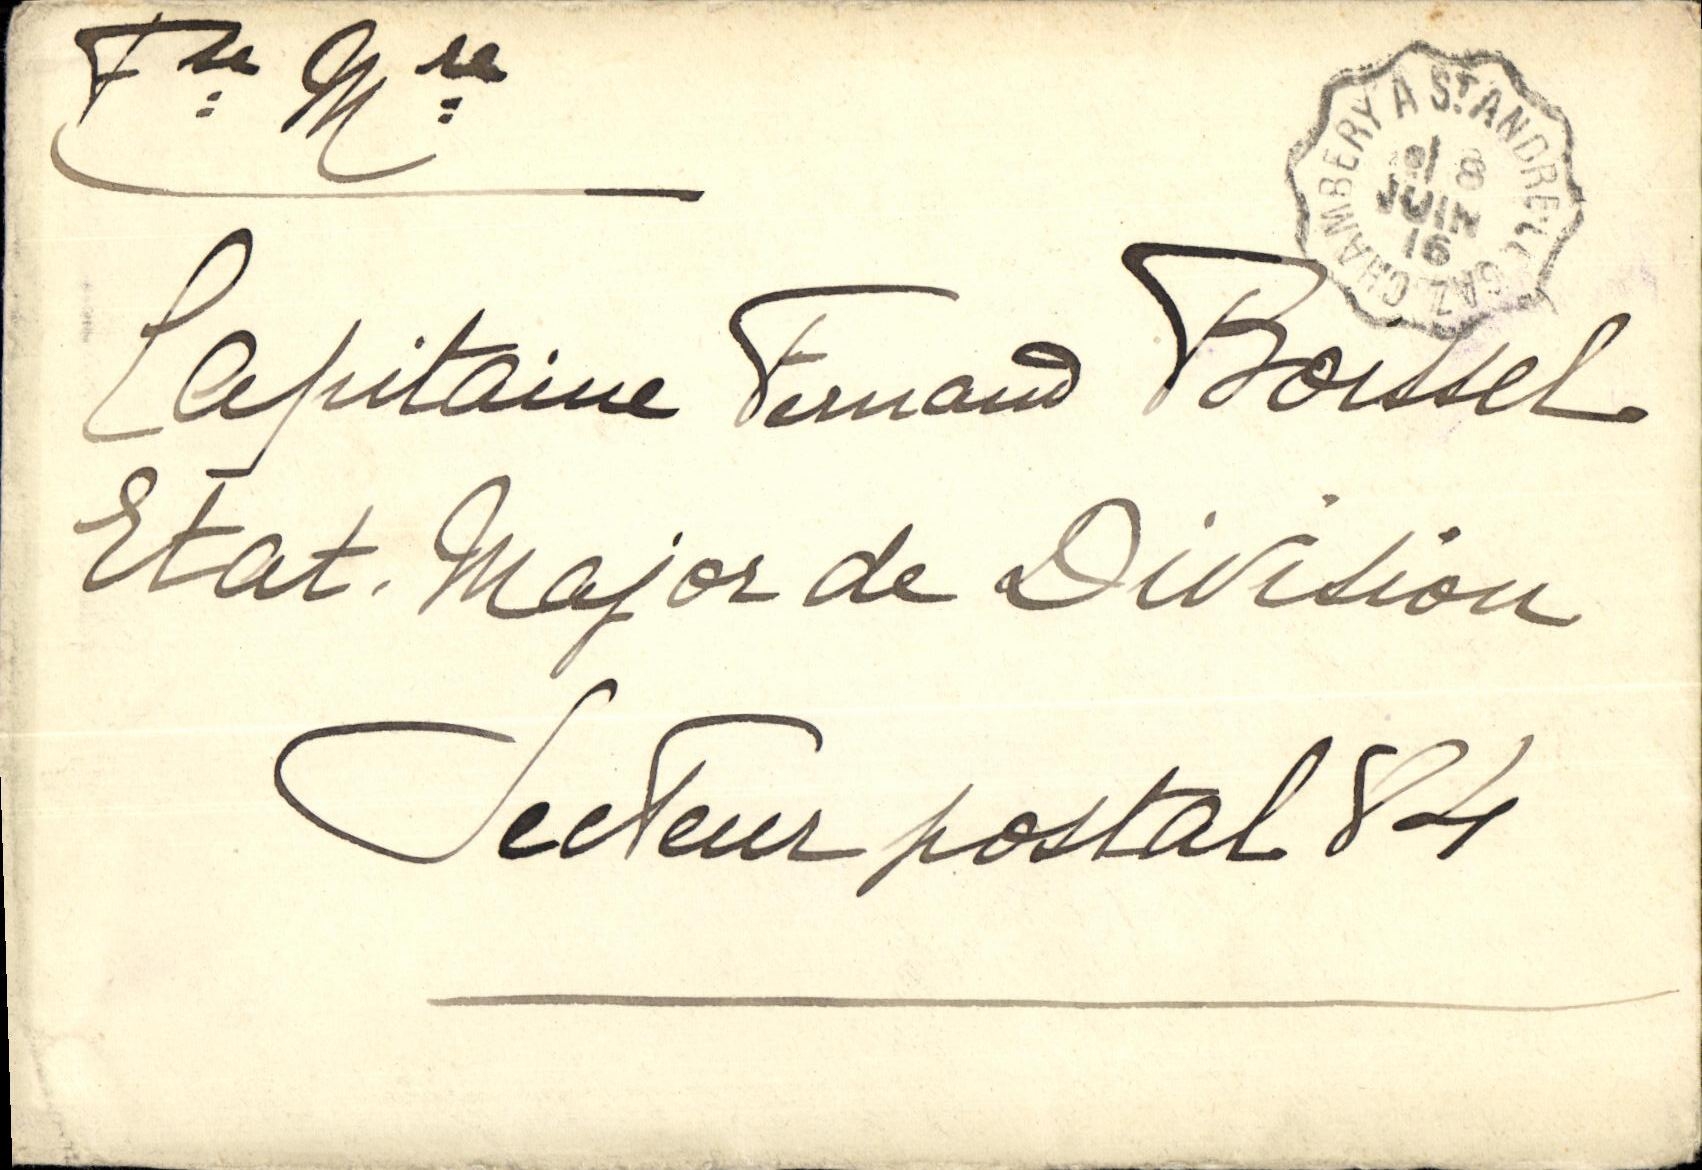 Fse Mre
CHAMBERY A St ANDRE-LE GAZ
8
JUIN
16
Capitaine Fernand Boissel
Etat. Major de Division
Secteur postal 84